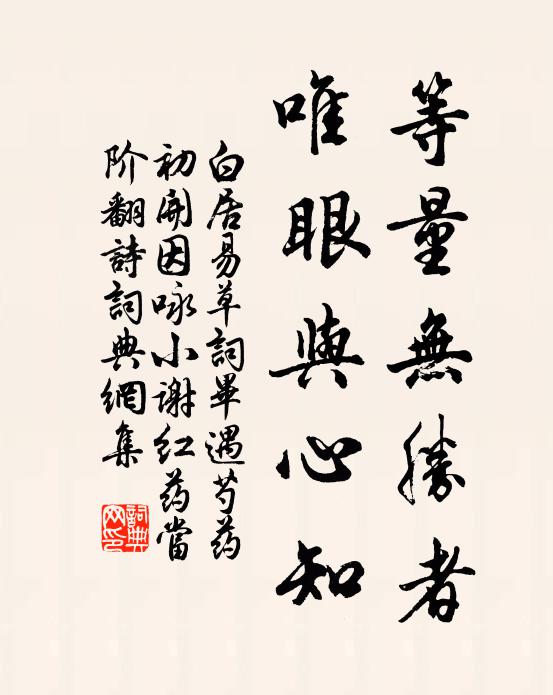 等量無勝者
唯眼與心知
白居易草詞畢遇芍药
初開因咏小謝红药當
阶翻詩詞典網集
詞典网印